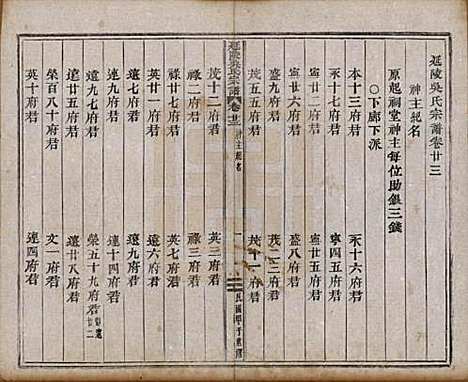 延陵吳氏宗譜卷廿三
神主紀名
原起祠堂神主每位助銀三錢
○下廊下派
本十三府君 永十六府君
永十七府君 寧四五府君
寧廿二府君 寧廿五府君
寧廿九府君 盛八府君
盛六府君 茂二府君
茂五五府君 茂十一府君
延陵吳氏宗譜 卷廿三 神主紀名 一 民國甲子重修
茂十二府君 英三府君
祿廿二府君 祿三府君
祿廿七府君 英七府君
英廿一府君 遠六府君
遠七府君 連廿一府君
連九府君 連十四府君
遠九七府君 榮五十九府君
遠廿五府君 遠廿八府君
榮百八十府君 文一府君
英十府君 連四府君